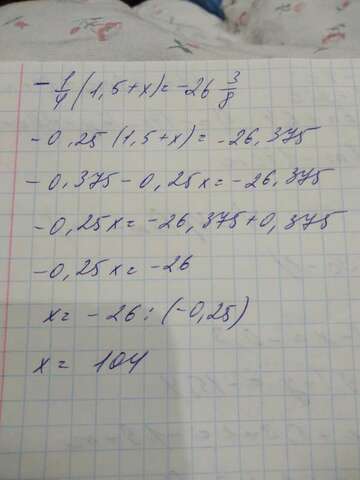 -1/4 (1,5+x)=-26 3/8
-0,25 (1,5+x)= -26,375
-0,375-0,25x=-26,375
-0,25x=-26,375+0,375
-0,25x=-26
x= -26:(-0,25)
x= 104